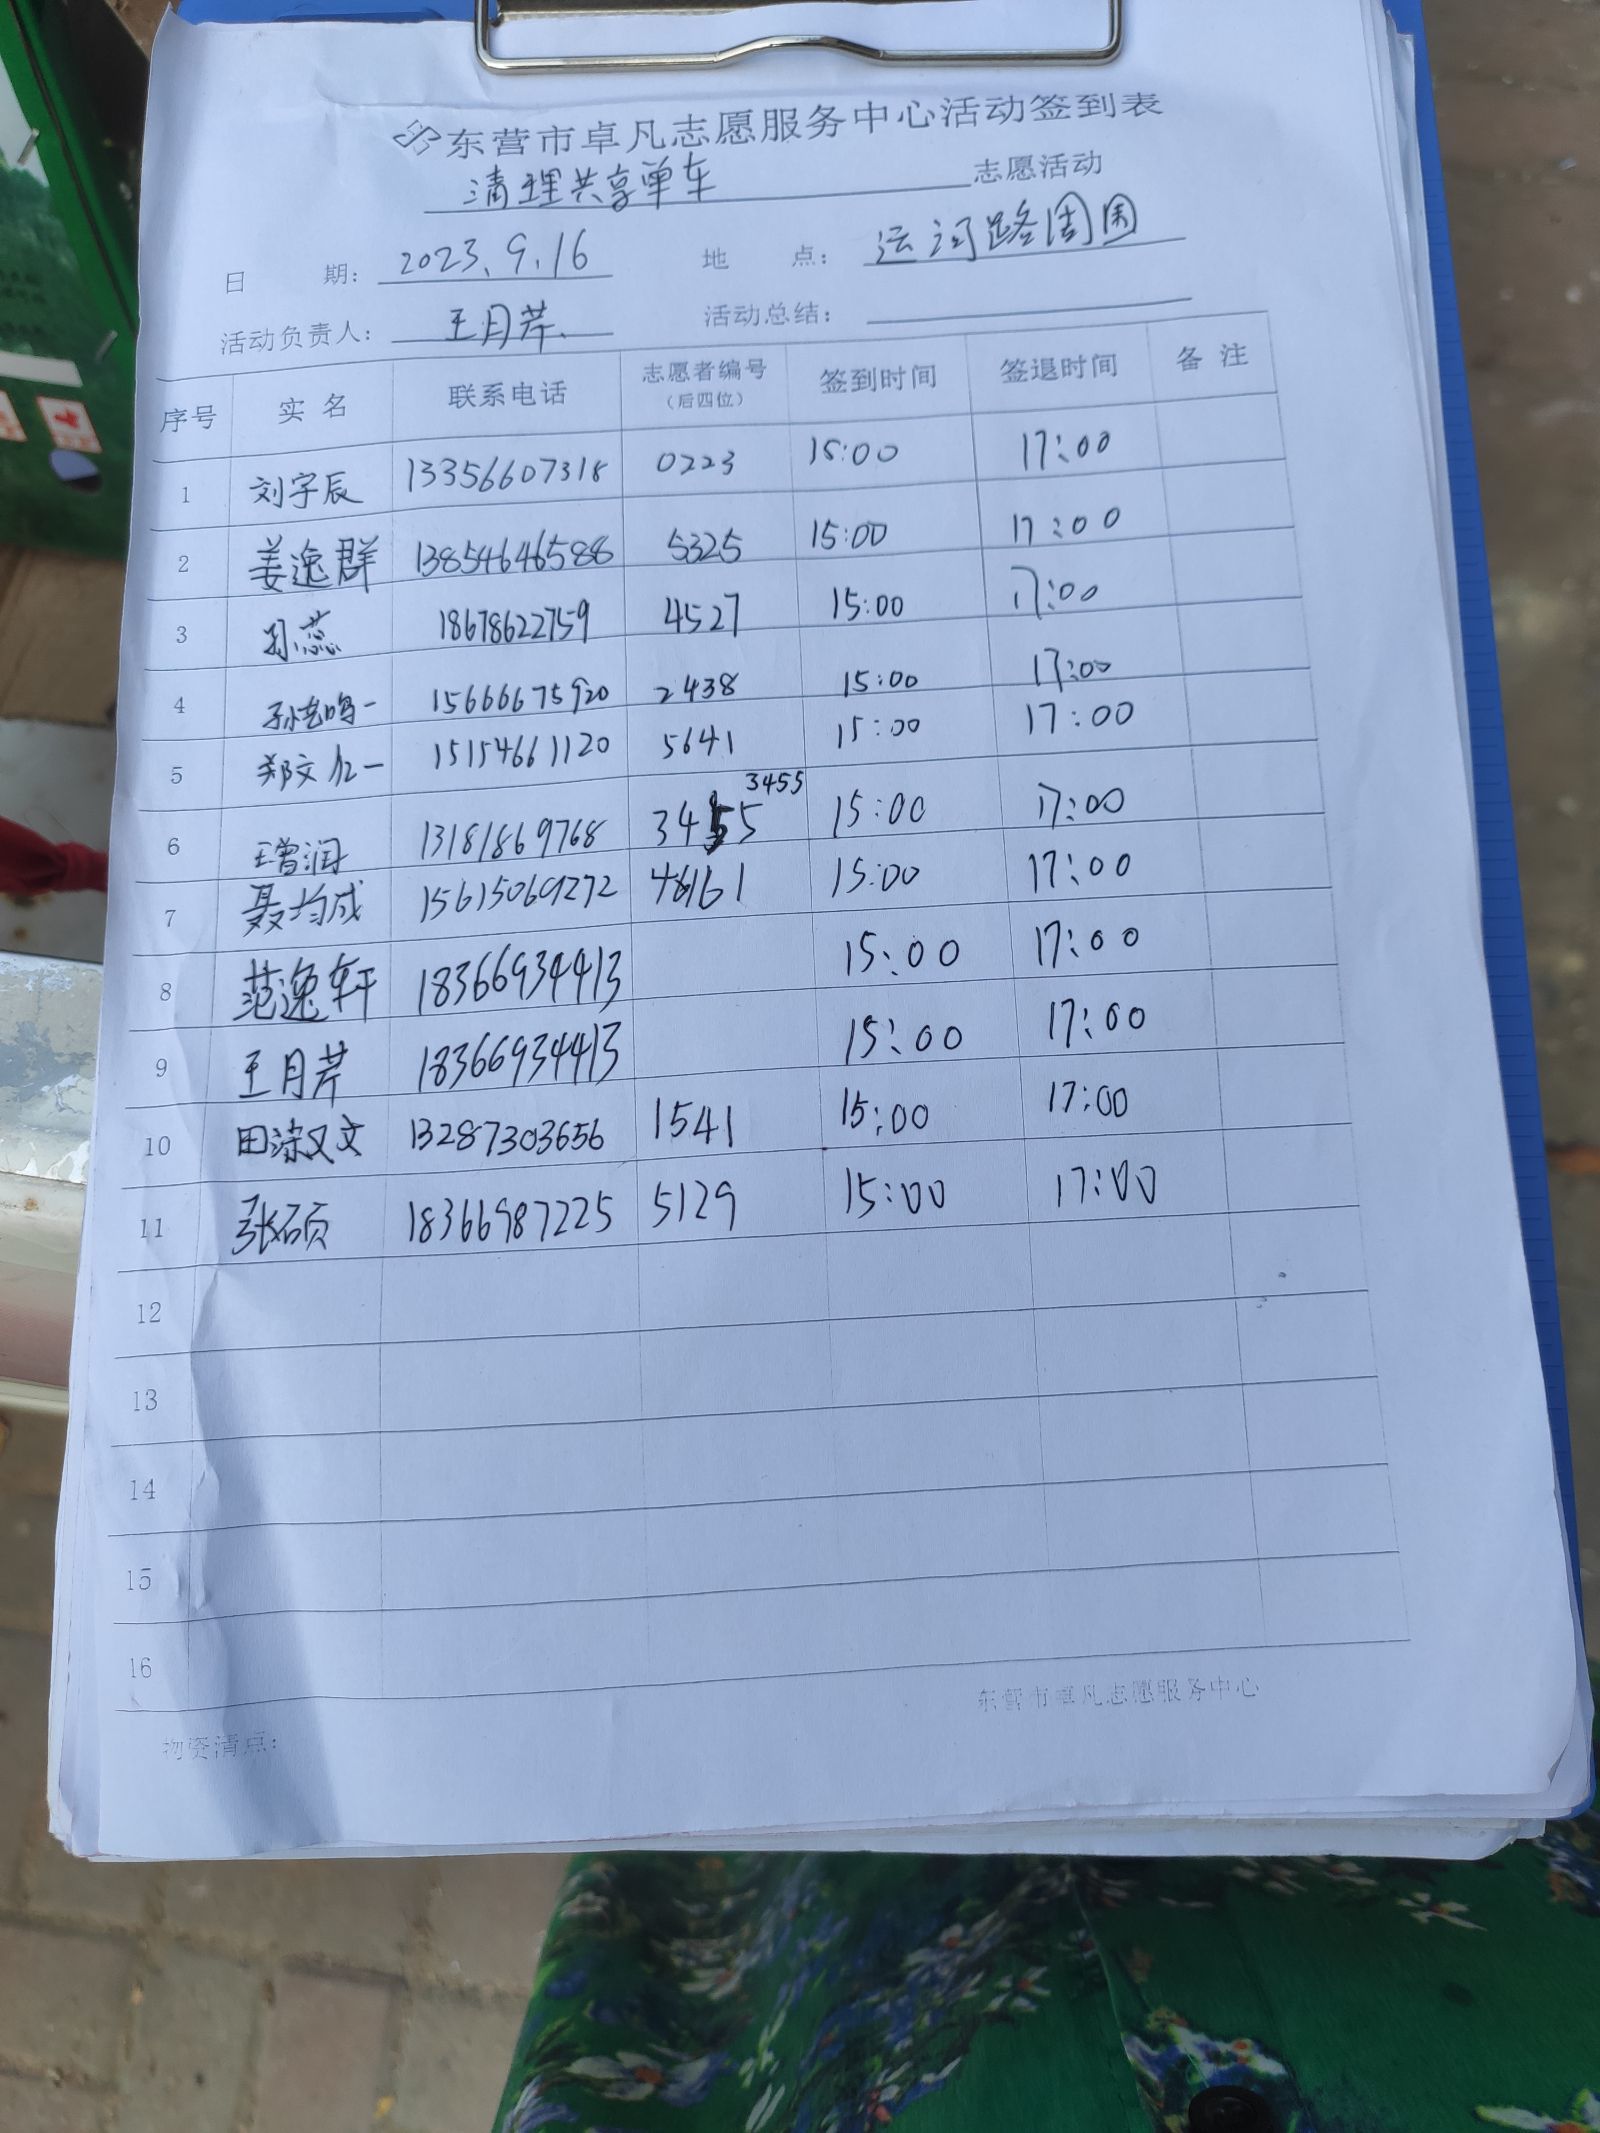 东营市卓凡志愿服务中心活动签到表
清理共享单车 志愿活动
日 期: 2023.9.16 地 点: 运河路周围
活动负责人: 王月芹 活动总结:
序号 实名 联系电话 志愿者编号(后四位) 签到时间 签退时间 备注
1 刘宇辰 13356607318 0223 15:00 17:00
2 姜逸群 13854646588 5325 15:00 17:00
3 孙蕊 18678622759 4527 15:00 17:00
4 孙 鸣一 15666675920 2438 15:00 17:00
5 郑文 一 15154661120 5641 15:00 17:00
3455
6 王曾润 13181869768 3455 15:00 17:00
7 聂均成 15615069272 15:00 17:00
8 范逸轩 18366934413 15:00 17:00
9 王月芹 18366934413 15:00 17:00
10 田 文 13287303656 1541 15:00 17:00
11 张硕 18366987225 5129 15:00 17:00
12
13
14
15
16
东营市卓凡志愿服务中心
物资清点: